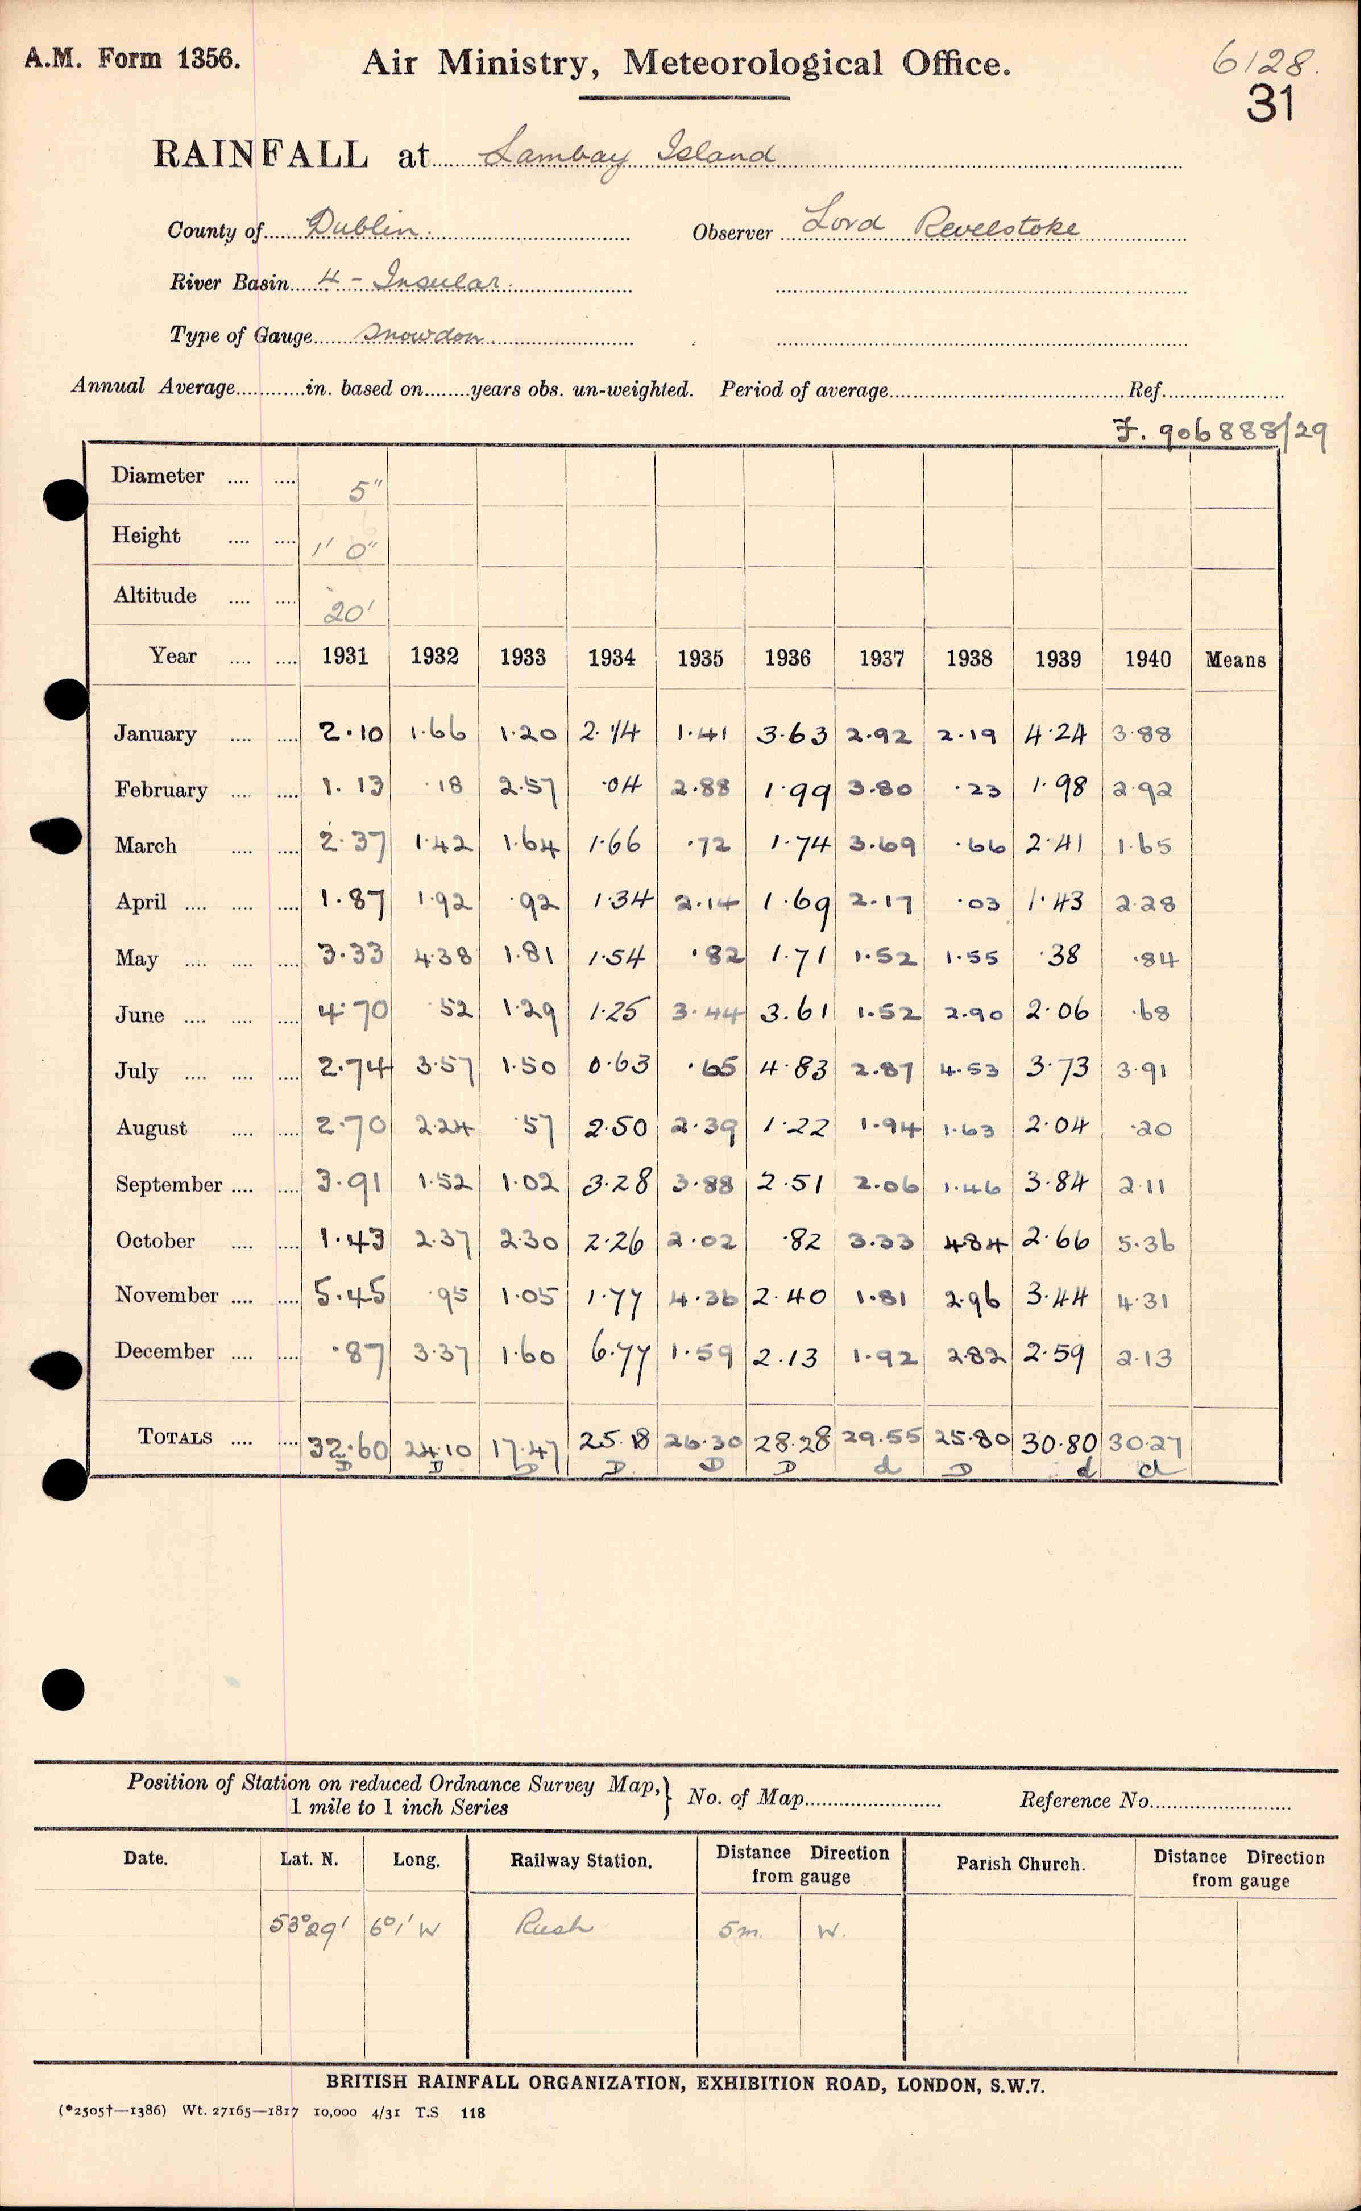 A.M. Form 1356.
Air Ministry, Meteorological Office.
6128.
31
RAINFALL at Lambay Island
County of Dublin. Observer Lord Revelstoke
River Basin 4 - Insular.
Type of Gauge Snowdon.
Annual Average............in. based on........years obs. un-weighted. Period of average.................... Ref....................
F. 906888/29
Diameter .... .... 5"
Height .... .... 1' 0"
Altitude .... .... 20'
Year .... .... 1931 1932 1933 1934 1935 1936 1937 1938 1939 1940 Means
January .... .... 2.10 1.66 1.20 2.14 1.41 3.63 2.92 2.19 4.24 3.88
February .... .... 1.13 .18 2.57 .04 2.88 1.99 3.80 .23 1.98 2.92
March .... .... 2.37 1.42 1.64 1.66 .72 1.74 3.69 .66 2.41 1.65
April .... .... .... 1.87 1.92 .92 1.34 2.14 1.69 2.17 .03 1.43 2.28
May .... .... .... 3.33 4.38 1.81 1.54 .82 1.71 1.52 1.55 .38 .84
June .... .... .... 4.70 .52 1.29 1.25 3.44 3.61 1.52 2.90 2.06 .68
July .... .... .... 2.74 3.57 1.50 0.63 .65 4.83 2.87 4.53 3.73 3.91
August .... .... 2.70 2.24 .57 2.50 2.39 1.22 1.94 1.63 2.04 .20
September .... .... 3.91 1.52 1.02 3.28 3.88 2.51 2.06 1.46 3.84 2.11
October .... .... 1.43 2.37 2.30 2.26 2.02 .82 3.33 4.84 2.66 5.36
November .... .... 5.45 .95 1.05 1.77 4.36 2.40 1.81 2.96 3.44 4.31
December .... .... .87 3.37 1.60 6.77 1.59 2.13 1.92 2.82 2.59 2.13
TOTALS .... .... 32.60 24.10 17.47 25.18 26.30 28.28 29.55 25.80 30.80 30.27
D D D D. D D d D d d
Position of Station on reduced Ordnance Survey Map,} No. of Map........................ Reference No.........................
1 mile to 1 inch Series
Date. Lat. N. Long. Railway Station. Distance Direction from gauge Parish Church. Distance Direction from gauge
53°29' 6°1' W Rush 5m. W.
BRITISH RAINFALL ORGANIZATION, EXHIBITION ROAD, LONDON, S.W.7.
(*2505†—1386) Wt. 27165—1817 10,000 4/31 T.S 118